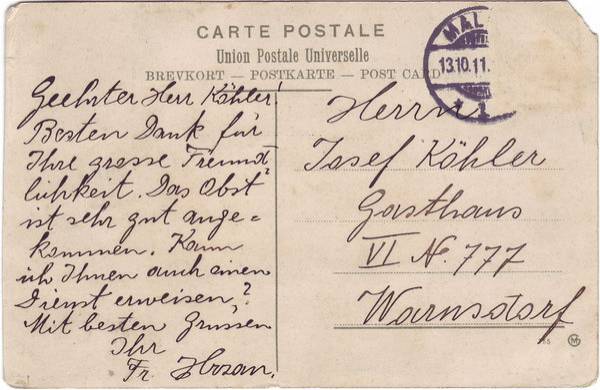 CARTE POSTALE
Union Postale Universelle
BREVKORT — POSTKARTE — POST CARD
MAL
13.10.11.
* 1
Geehrter Herr Köhler!
Besten Dank für
Ihre grosse Freund-
lichkeit. Das Obst
ist sehr gut ange=
kommen. Kann
ich Ihnen auch einen
Dienst erweisen?
Mit besten Grüssen
Ihr
Fr.
Herrn
Josef Köhler
Gasthaus
VI N. 777
Warnsdorf